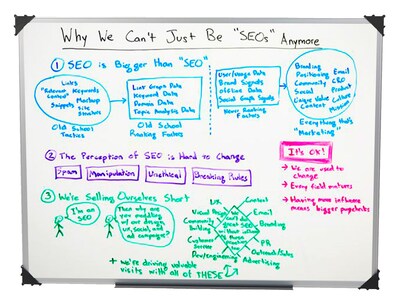 Why We Can't Just Be "SEOs" Anymore
1 SEO is Bigger than "SEO"
Links
"Relevant Keywords
Content" Markup
Snippets Site
Structure
Old School
Tactics
Link Graph Data
Keyword Data
Domain Data
Topic Analysis Data
Old School
Ranking Factors
User/usage Data
Brand Signals
Offline Data
Social Graph Signals
Newer Ranking
Factors
Branding
Positioning Email
Community CRO
Social Product
Unique Value Culture
Content Mission
Everything that's
"Marketing"
2 The Perception of SEO is Hard to Change
Spam
Manipulation
Unethical
Breaking Rules
It's OK!
→ We are used
to change
→ Every field matures
→ Having more influence
means bigger paychecks
3 We're Selling Ourselves Short
I'm an
SEO
Then why are
you meddling
w/ our design,
UX, social, and
ad campaigns?
UX
Content
Visual Design
Email
Community
Building
Branding
Customer
Service
PR
Dev/engineering
Outreach/Sales
Advertising
great SEO
without
these
+ we're driving valuable
visits with all of THESE